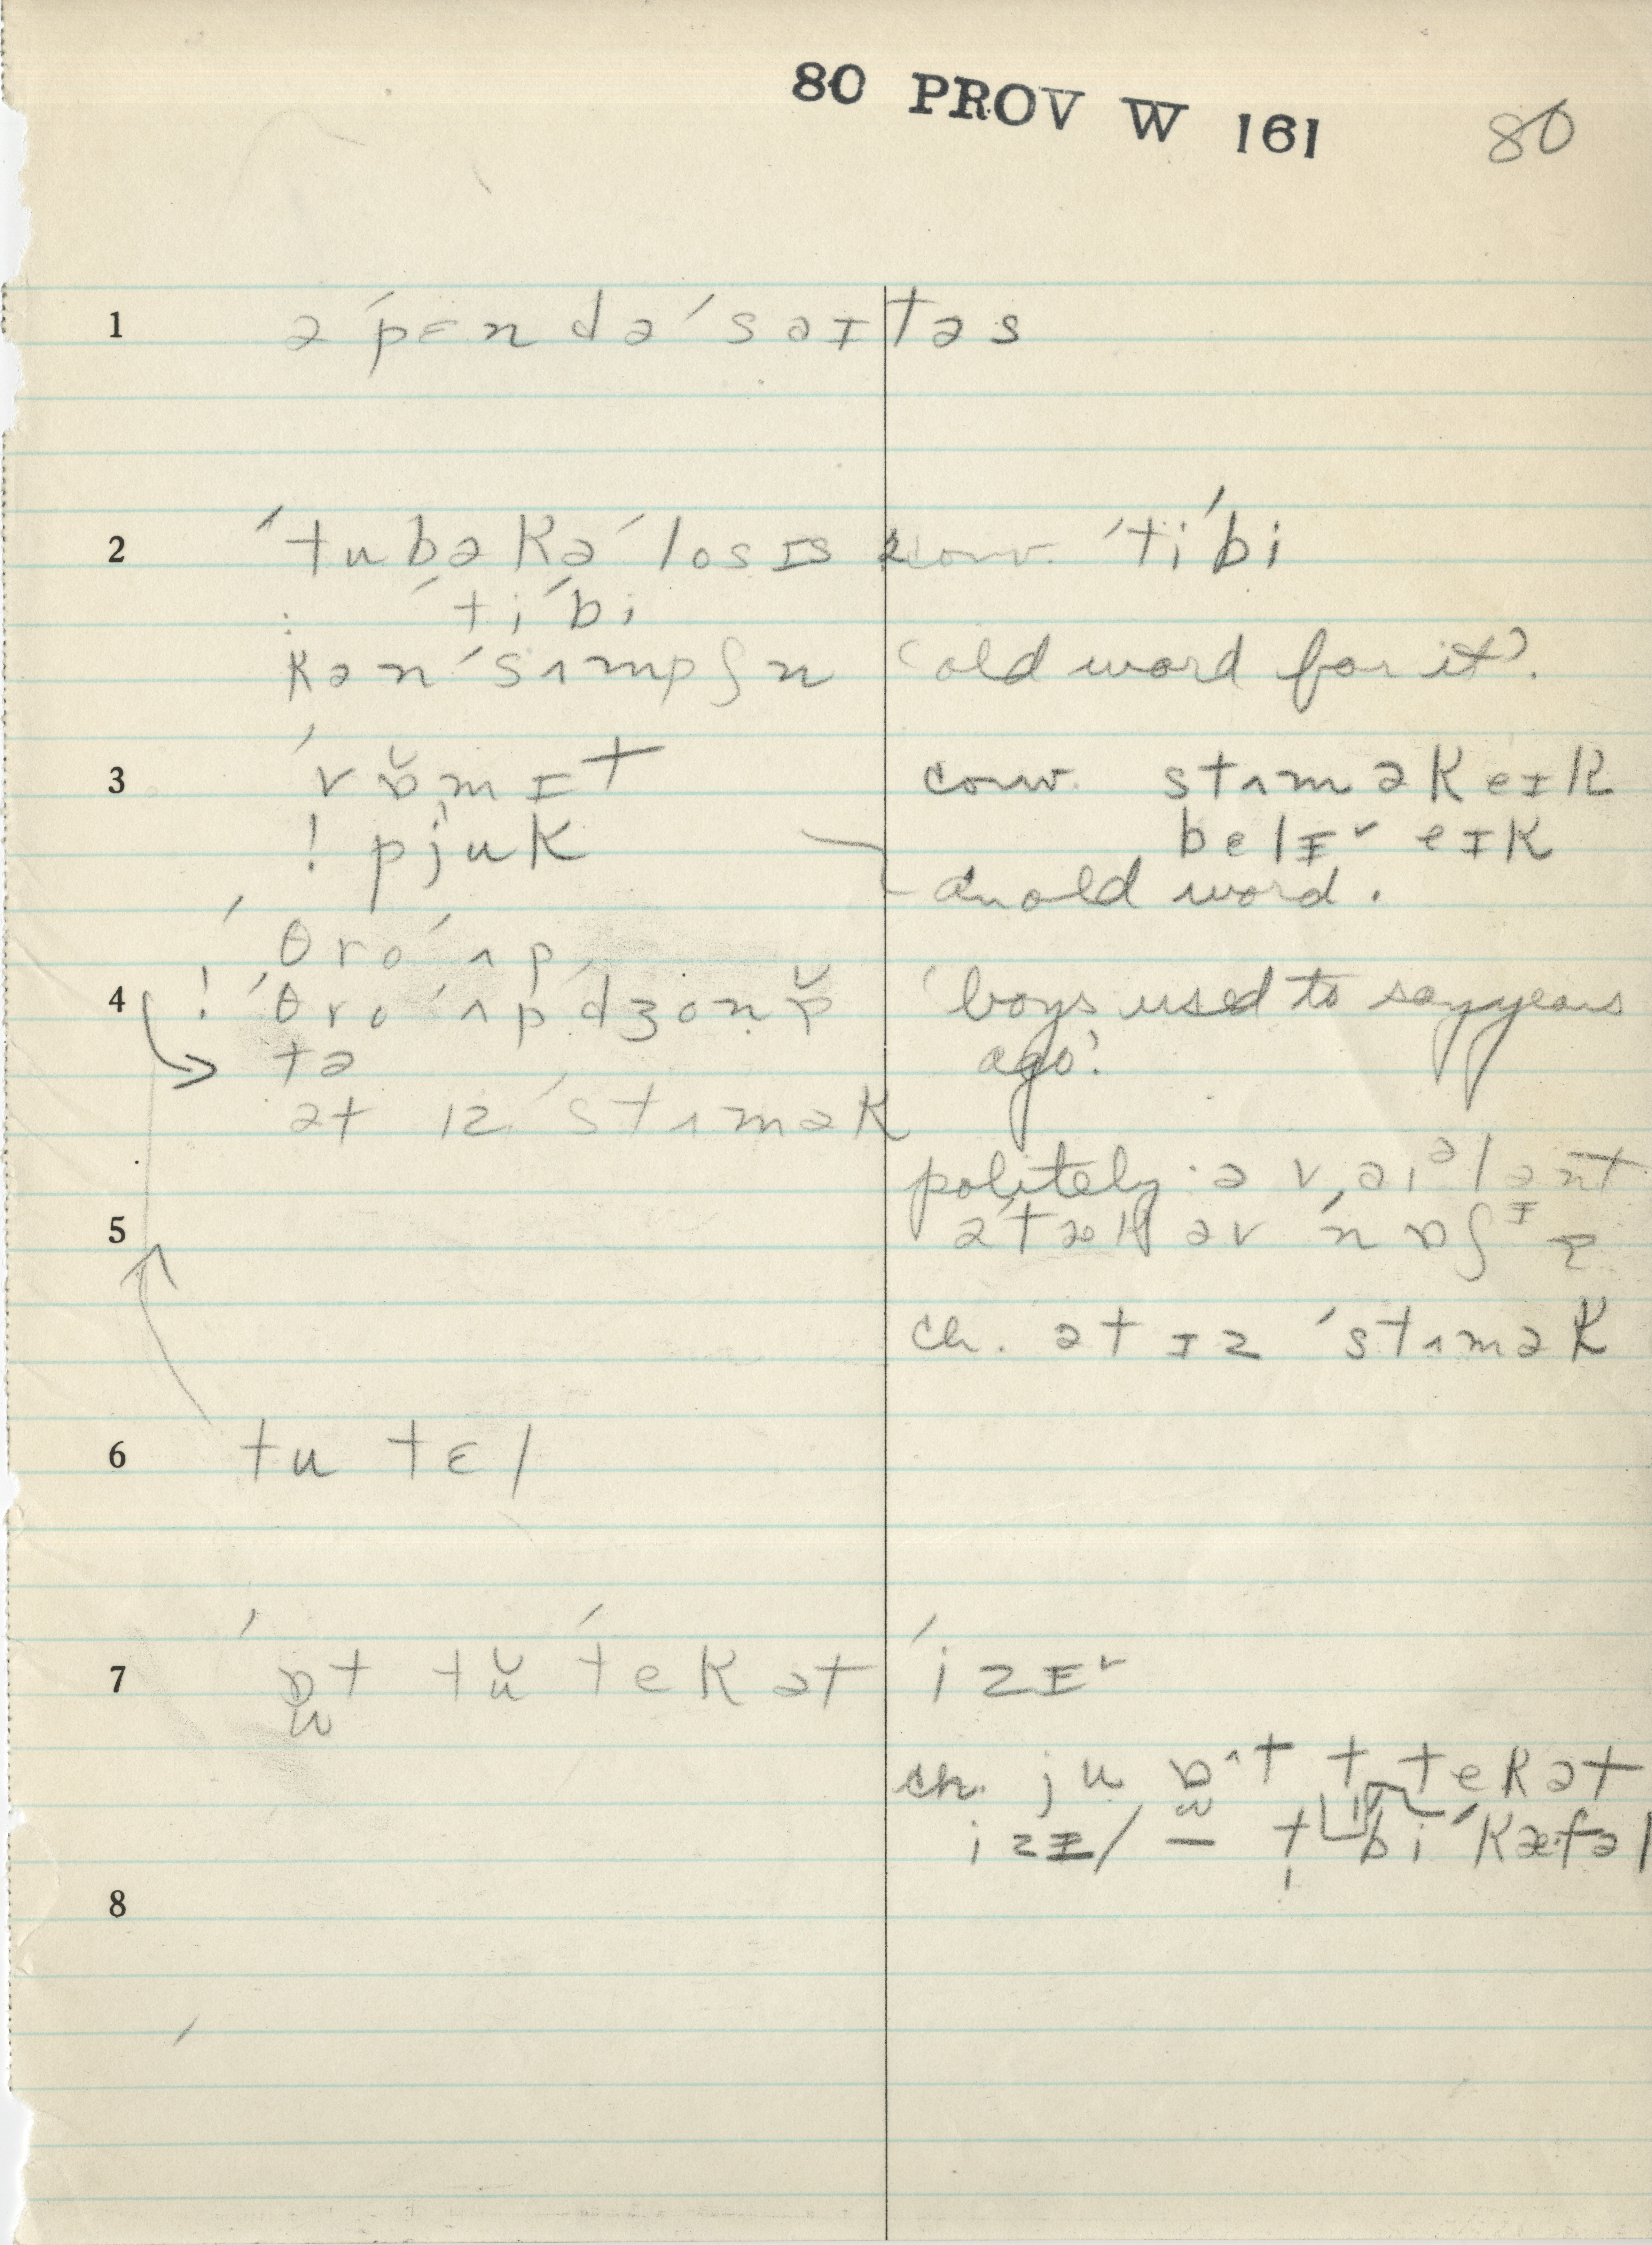 80 PROV W 161 80
1 ə ˊpɛn də ˊsaɪtəs
2 ˊtubəkəˊlosɪs conv. ˊtiˊbi
: ˊtiˊbi
kənˊsʌmpʃn (old word for it).
3 ˊvɒ̆mɪt conv. stʌməkeɪk
! pjuk belɪr eɪk
an old word.
ˊθroˊʌp
4 ! ˊθroˊʌpˊdʒon 'boys used to say years
tə ago'.
ət ɪz ˊstʌmək
politely: ə vaɪələnt
5 əˊtæk əv ˊnɒʃɪ
ch. ət ɪz ˊstʌmək
6 tu tɛl
7 ˊɒt tŭ ˊtek ət ˊizɪr
ch. ju ɒˆt t tek ət
izɪ / — t bi ˊkæfəl
8